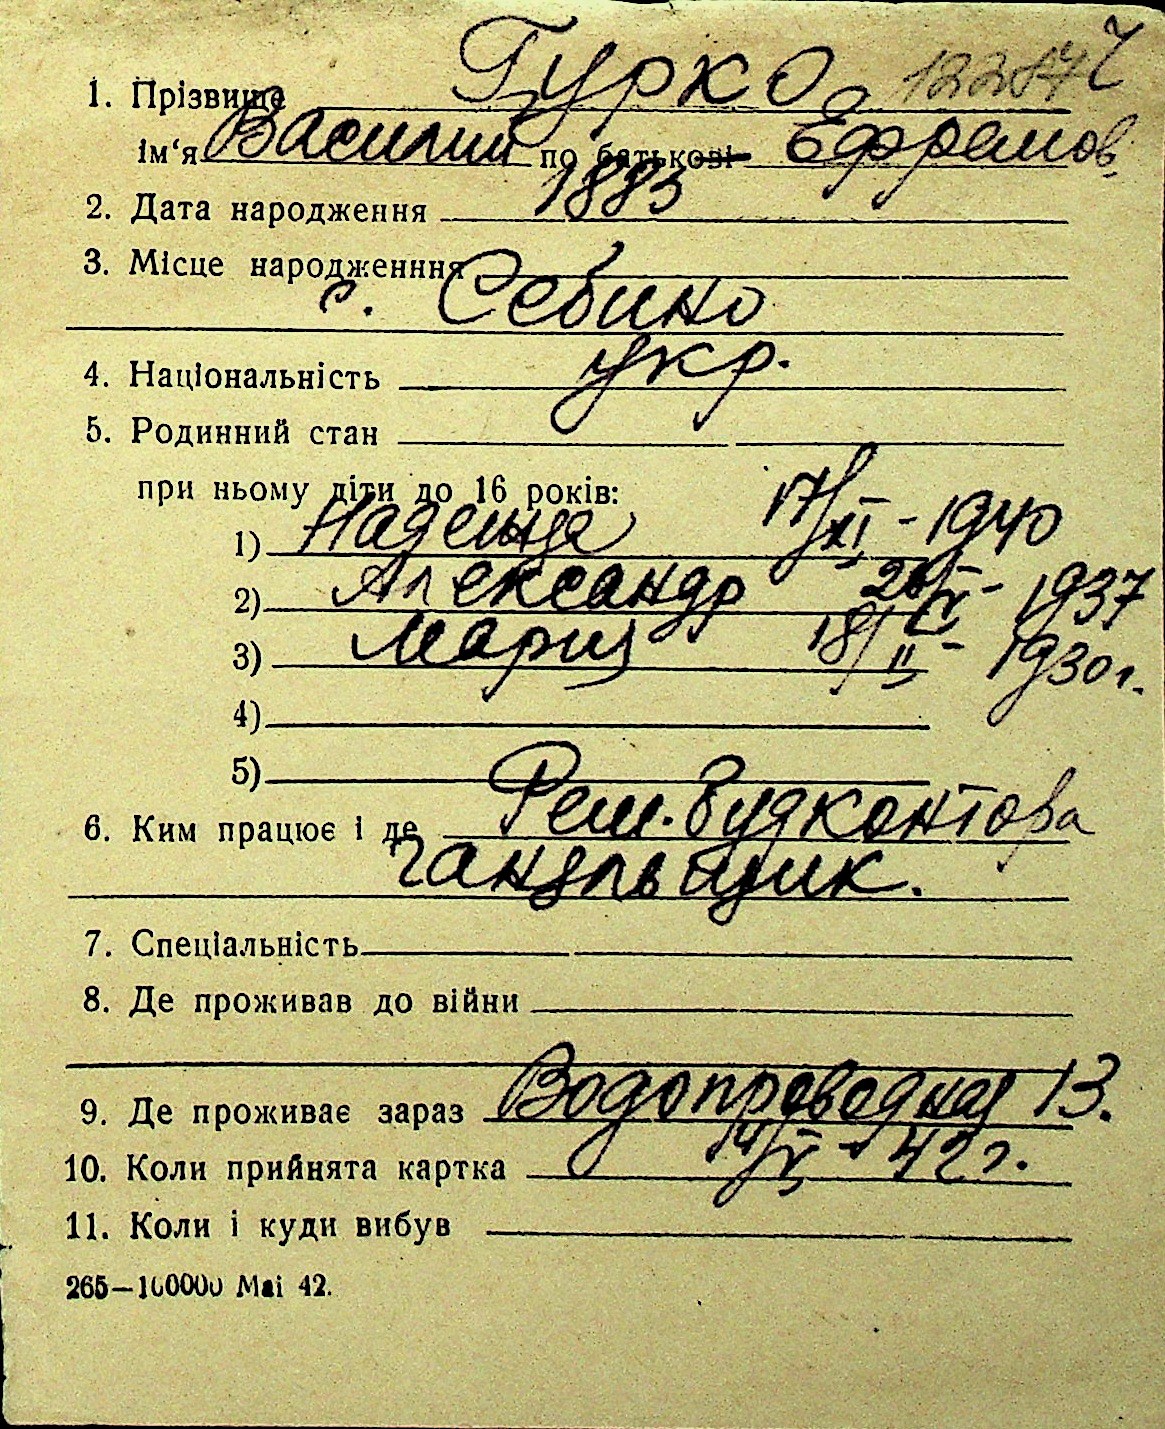 1. Прізвище Гурко
ім'я Василий по батькові Ефремов.
2. Дата народження 1883
3. Місце народженння
с. Себино
4. Національність укр.
5. Родинний стан
при ньому діти до 16 років:
1) Надежда 17/XI - 1940
2) Александр 1937
3) Мария 18/II - 1930 г.
4)
5)
6. Ким працює і де Рем. Будконтора
7. Спеціальність
8. Де проживав до війни
9. Де проживає зараз Водопроводная 13.
10. Коли прийнята картка 42 г.
11. Коли і куди вибув
265—100000 Mai 42.